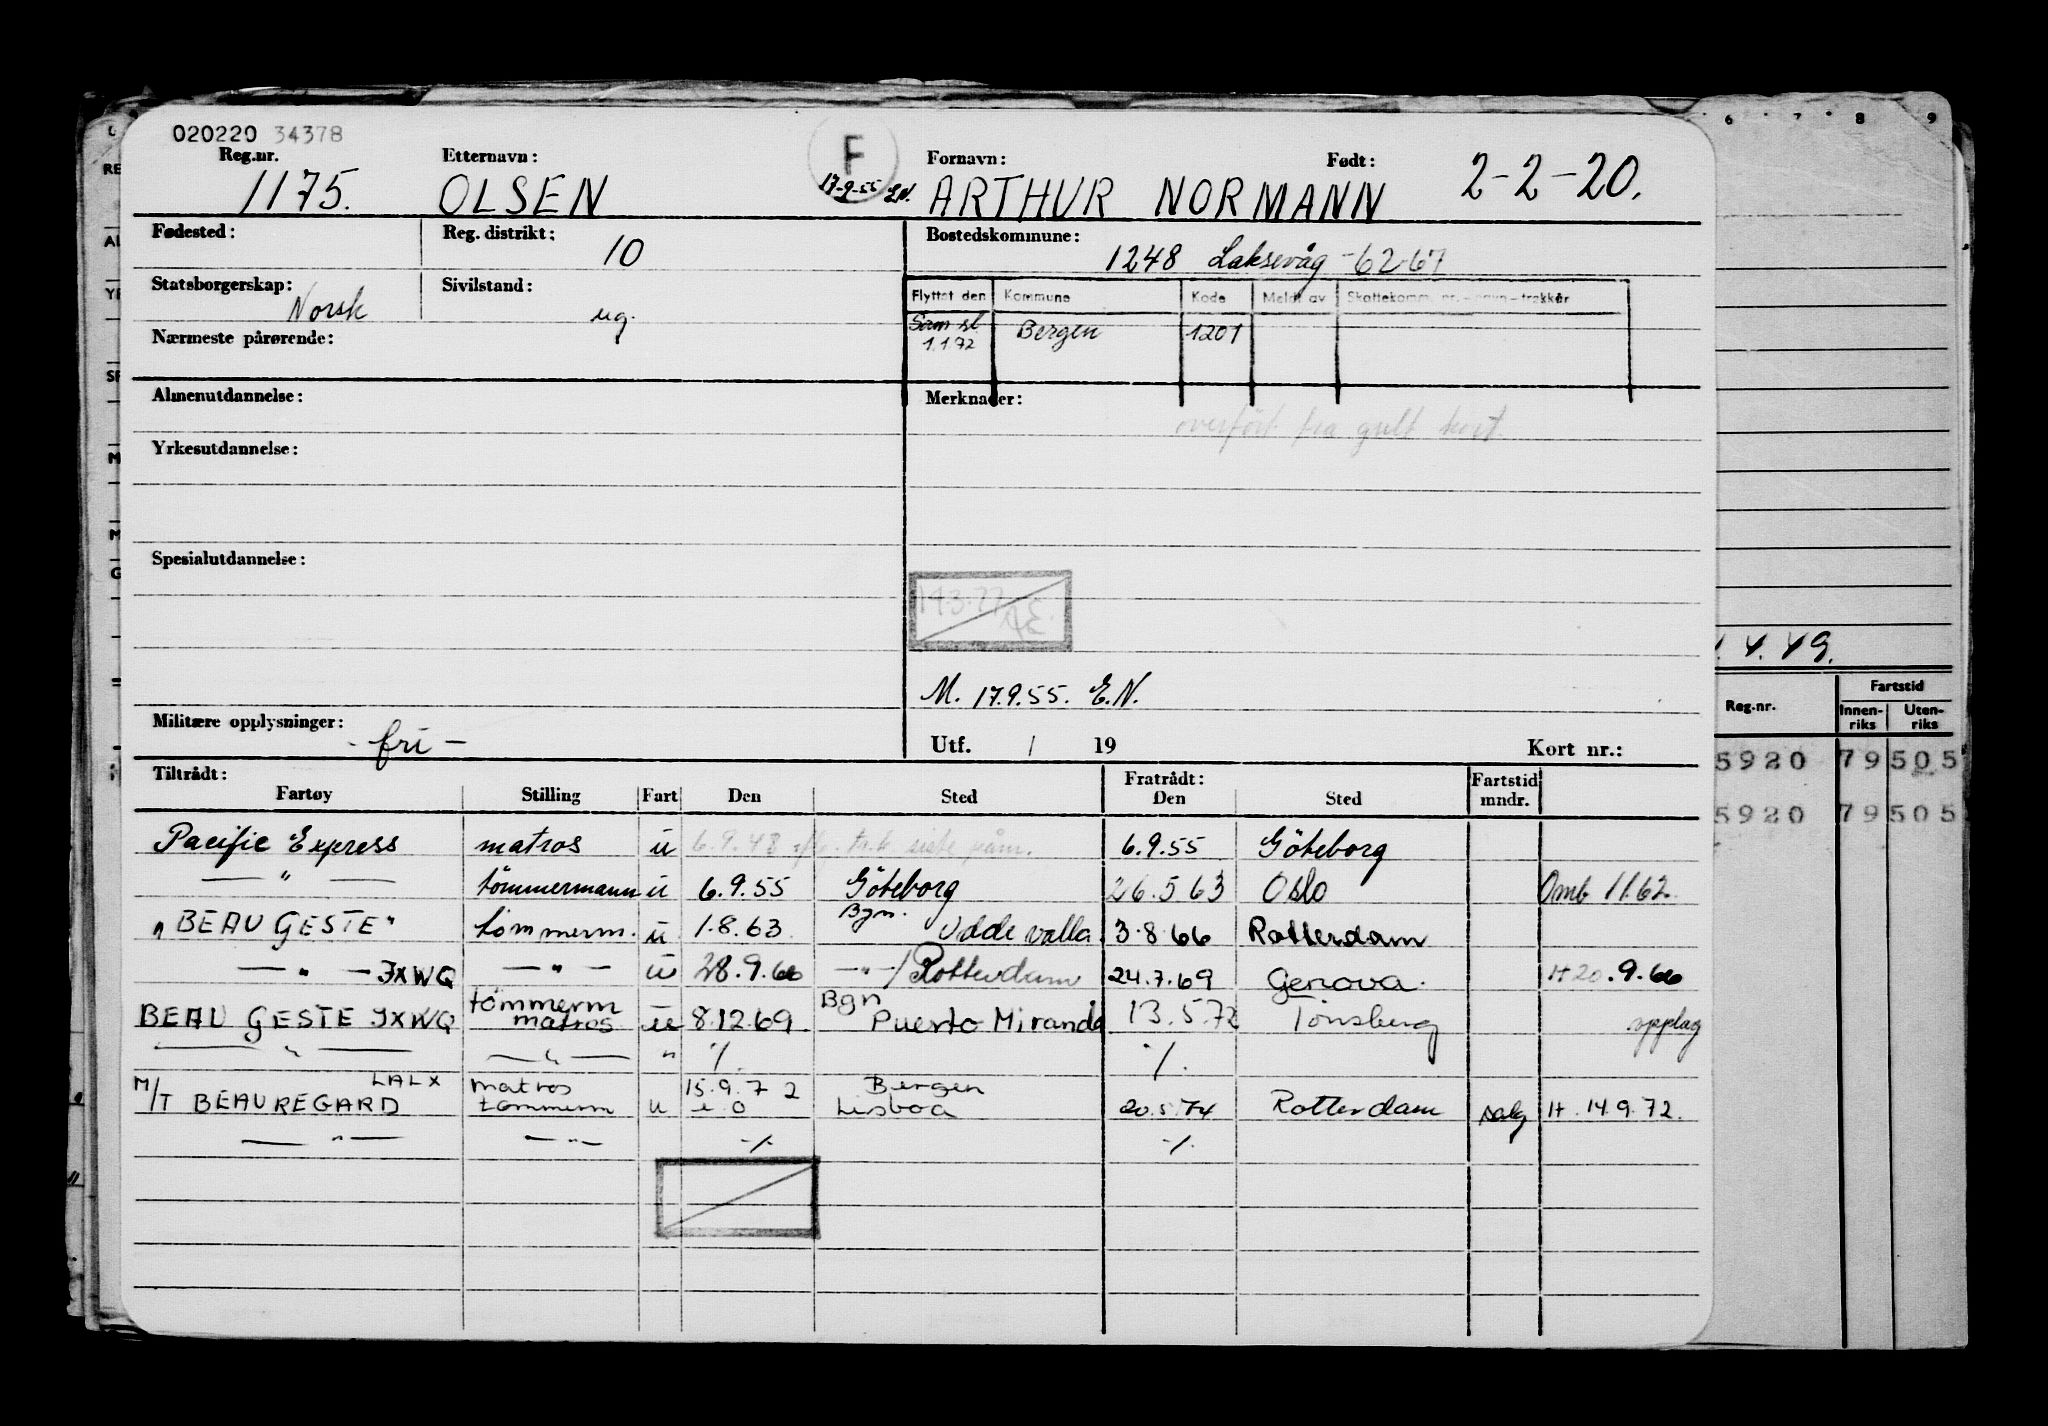 020220 34378
F
17-9-55 E.N.
Reg.nr. Etternavn: Fornavn: Født:
1175. OLSEN ARTHUR NORMANN 2-2-20.
Fødested: Reg. distrikt: 10 Bostedskommune:
1248 Laksevåg -62-67
Statsborgerskap: Norsk Sivilstand: ug.
Flyttet den Kommune Kode Meldt av Skattekomm. nr. - navn - trekkår
Sam st. 1.1.72 Bergen 1201
Nærmeste pårørende:
Almenutdannelse: Merknader:
overført fra gult kort.
Yrkesutdannelse:
Spesialutdannelse:
M. 17.9.55. E.N.
Militære opplysninger: - fri -
Utf. / 19 Kort nr.:
Tiltrådt: Fratrådt: Fartstid
Fartøy Stilling Fart Den Sted Den Sted mndr.
Pacific Express matros u 6.9.48 siste påm. 6.9.55 Göteborg
— " — tömmermann u 6.9.55 Göteborg 26.5 63 Oslo Omb 11.62.
"BEAU GESTE" tömmerm. u 1.8.63 Bgn. Uddevalla 3.8 66 Rotterdam
— " — JXWQ — " — u 28.9.66 — " —/Rotterdam 24.7.69 Genova. H 20.9.66
BEAU GESTE JXWQ tömmerm matros u 8.12.69 Bgn Puerto Miranda 13.5.72 Tönsberg opplag
— " — — " — " ./. ./.
M/T BEAUREGARD LALX matros tömmerm u 15.9.72 Bergen Lisboa 20.5.74 Rotterdam salg H. 14.9.72.
— " — — " — ./. ./.
6 7 8 9
4.49.
Reg.nr. Fartstid
Innen-riks Uten-riks
5920 79 505
5920 79 505